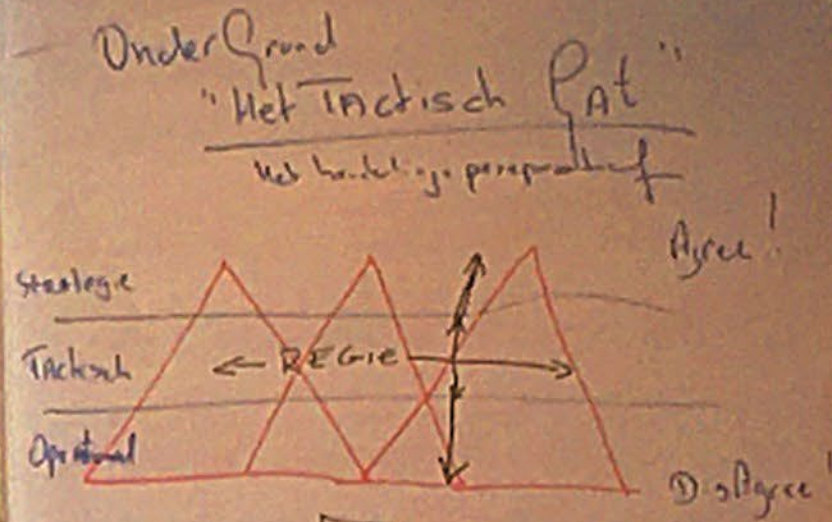 OnderGrond
"Het Tactisch Gat"
Het handelingsperspectief
Agree!
Strategie
Tactisch
REGIE
Operationeel
DisAgree!